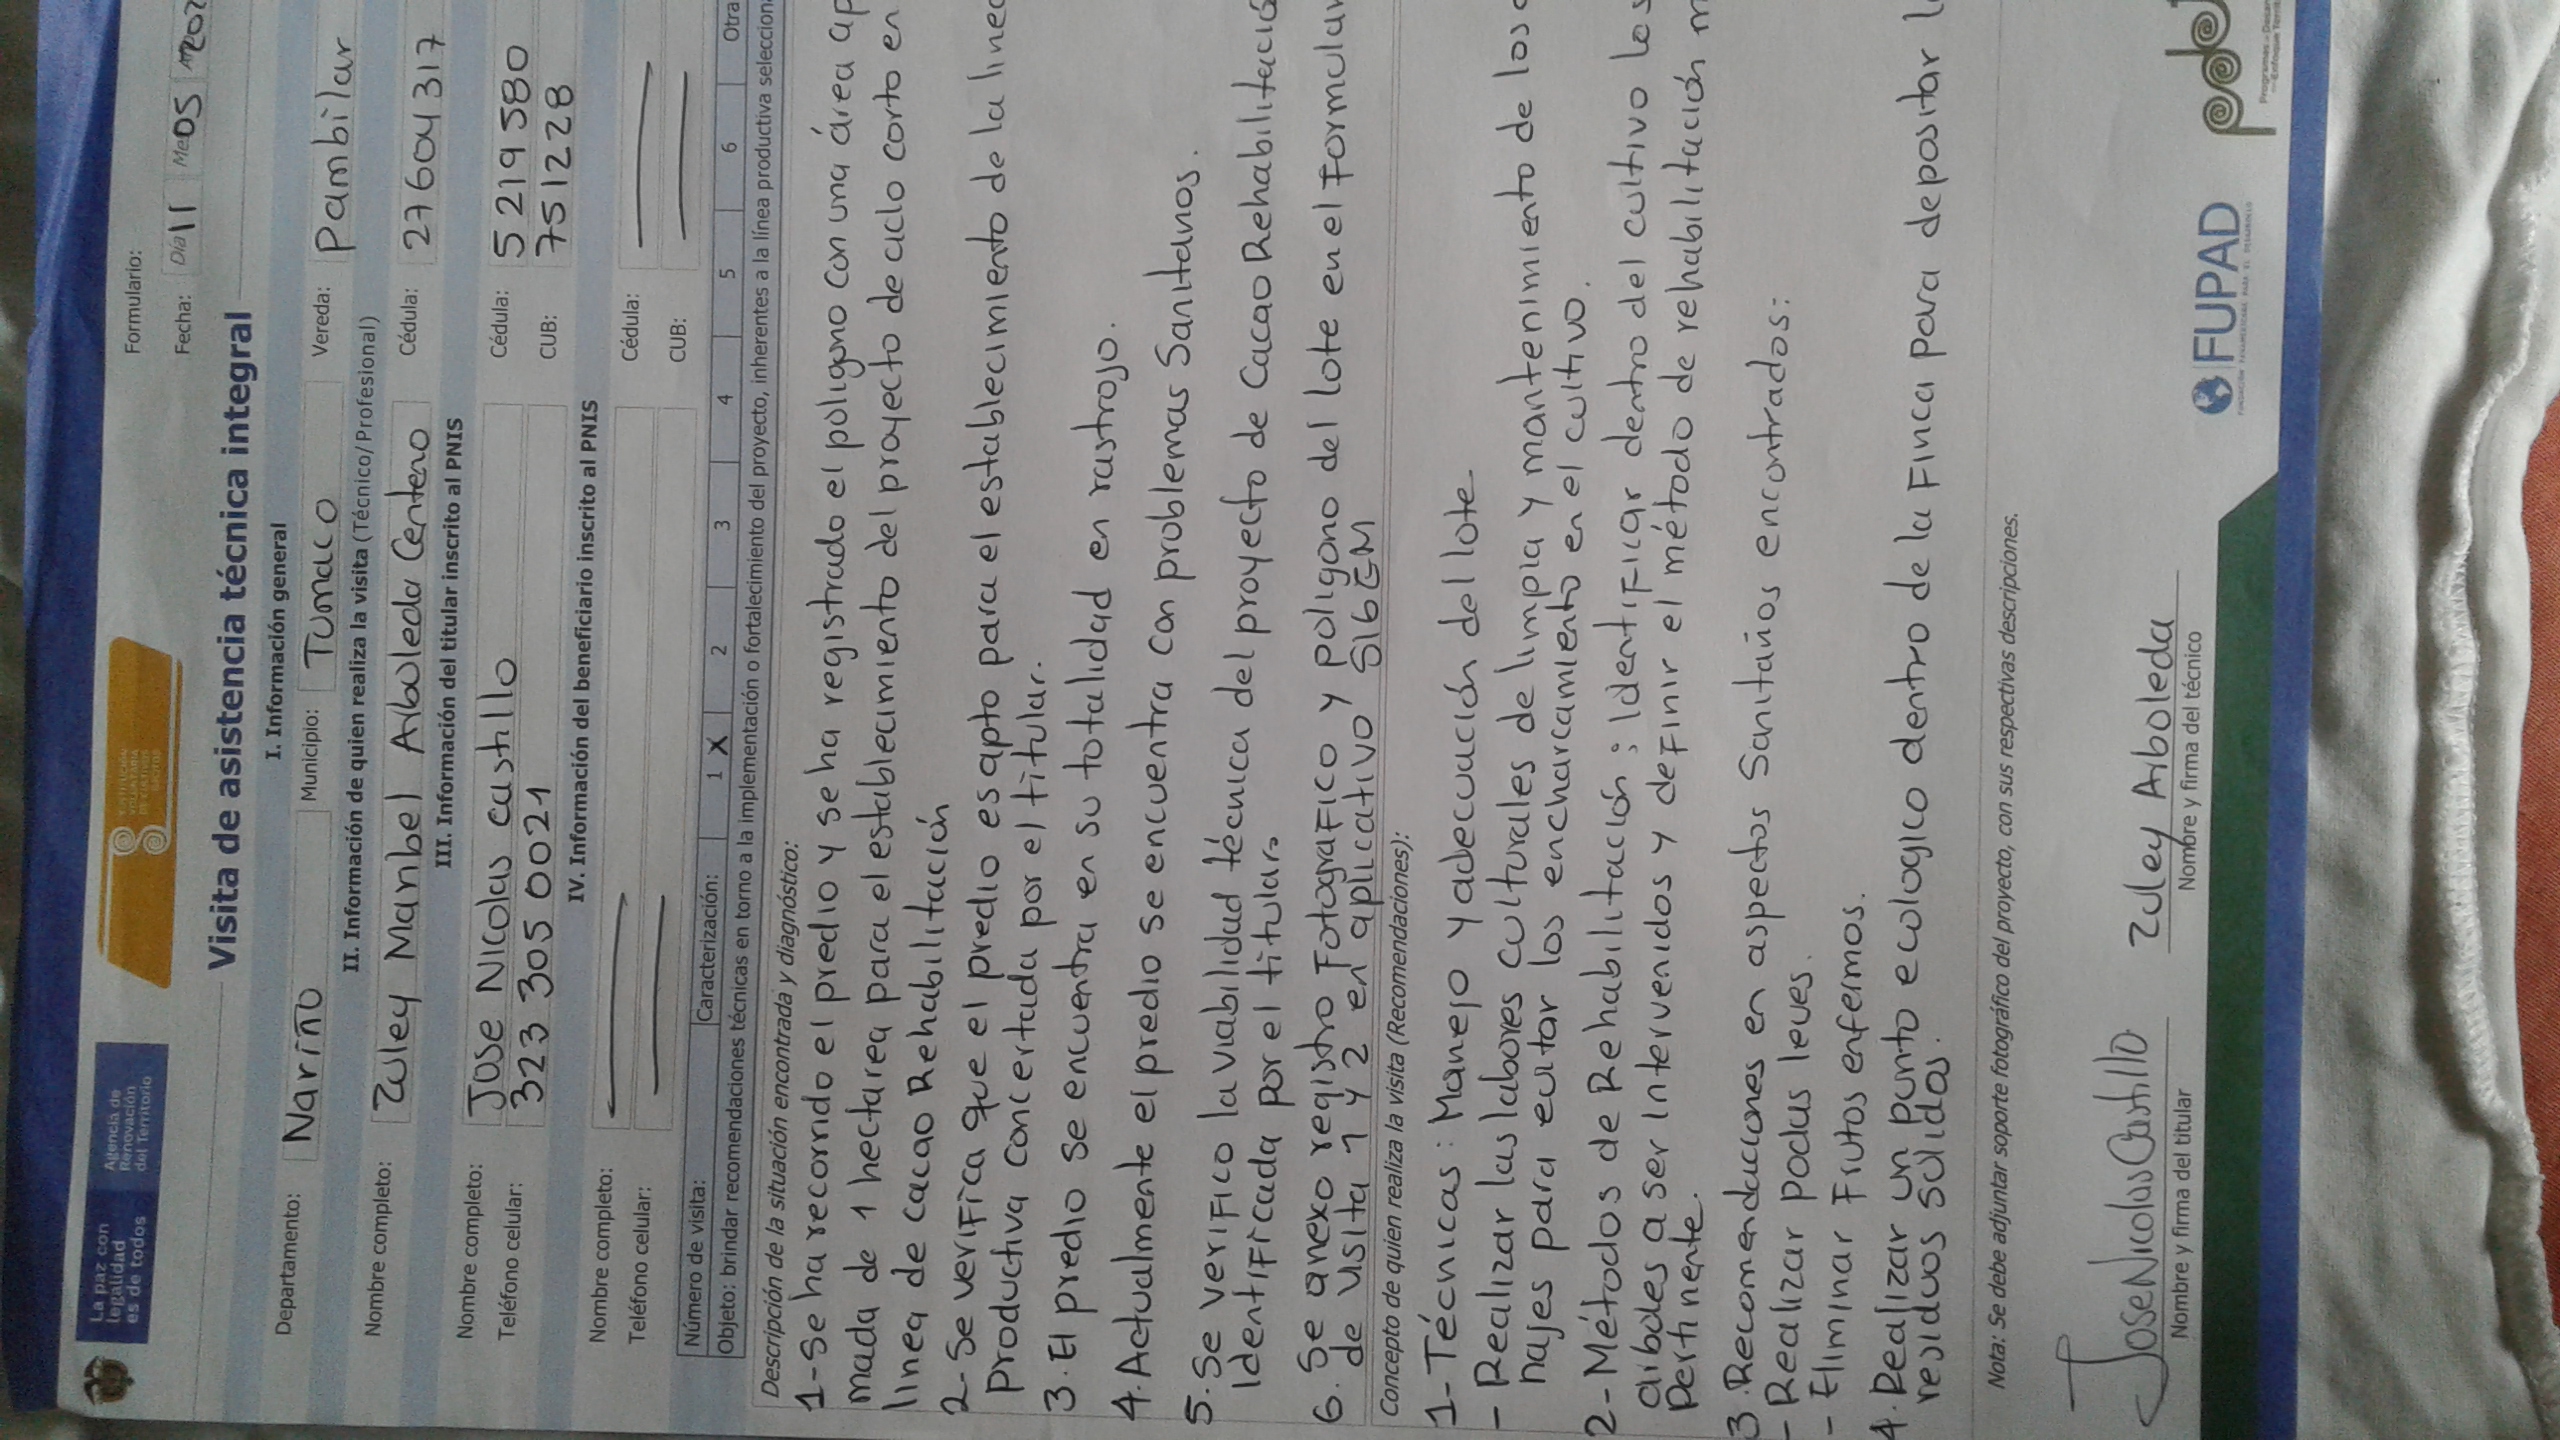 La paz con
legalidad
es de todos
Agencia de
Renovación
del Territorio
SUSTITUCIÓN
VOLUNTARIA
DE CULTIVOS
ILÍCITOS
Formulario:
Fecha: Día 11 Mes 05
Visita de asistencia técnica integral
I. Información general
Departamento: Nariño Municipio: Tumaco Vereda: Pambilar
II. Información de quien realiza la visita (Técnico/Profesional)
Nombre completo: Zuley Maribel Arboleda Centeno Cédula: 27604317
III. Información del titular inscrito al PNIS
Nombre completo: Jose Nicolas castillo Cédula: 5219580
Teléfono celular: 323 305 0021 CUB: 751228
IV. Información del beneficiario inscrito al PNIS
Nombre completo: Cédula:
Teléfono celular: CUB:
Número de visita: Caracterización: 1 X 2 3 4 5 6 Otra
Objeto: brindar recomendaciones técnicas en torno a la implementación o fortalecimiento del proyecto, inherentes a la línea productiva selecciona
Descripción de la situación encontrada y diagnóstico:
1-Se ha recorrido el predio y se ha registrado el poligono con una área ap
mada de 1 hectarea para el establecimiento del proyecto de ciclo corto en
linea de cacao Rehabilitación
2-Se verifica que el predio es apto para el establecimiento de la linea
productiva concertada por el titular.
3. El predio se encuentra en su totalidad en rastrojo.
4. Actualmente el predio se encuentra con problemas Sanitarios.
5. Se verifico la viabilidad técnica del proyecto de Cacao Rehabilitació
identificada por el titular.
6. Se anexo registro Fotografico y poligono del lote en el Formular
de visita 1 y 2 en aplicativo SIGEM
Concepto de quien realiza la visita (Recomendaciones):
1-Técnicas: Manejo y adecuación del lote
- Realizar las labores culturales de limpia y mantenimiento de los d
najes para evitar los encharcamiento en el cultivo.
2-Métodos de Rehabilitación: Identificar dentro del cultivo los
árboles a ser intervenidos y definir el método de rehabilitación m
Pertinente.
3. Recomendaciones en aspectos Sanitarios encontrados:
- Realizar podas leves.
- Eliminar Frutos enfermos.
4. Realizar un punto ecologico dentro de la Finca para depositar l
residuos solidos.
Nota: Se debe adjuntar soporte fotográfico del proyecto, con sus respectivas descripciones.
Jose Nicolas Castillo Zuley Arboleda
Nombre y firma del titular Nombre y firma del técnico
FUPAD
FUNDACIÓN PANAMERICANA PARA EL DESARROLLO